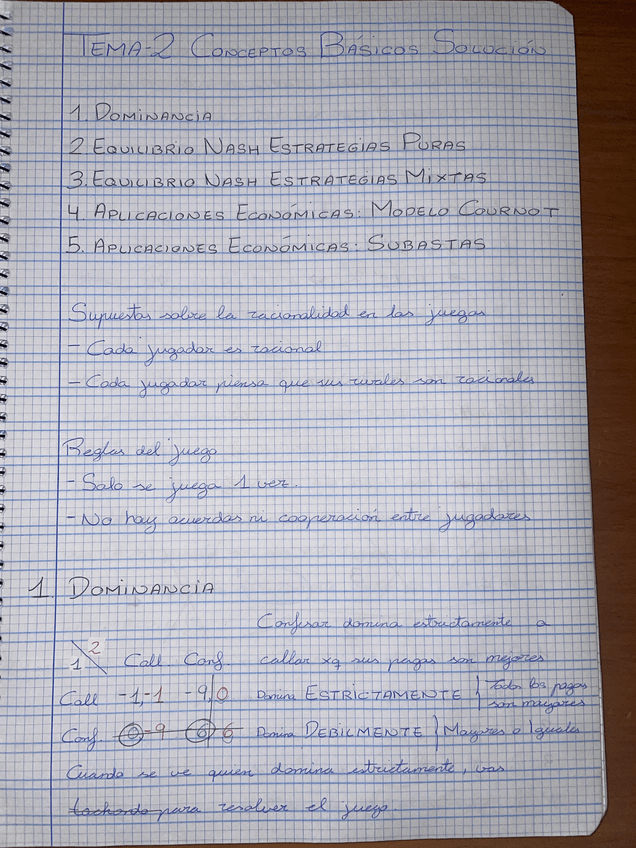 TEMA-2 CONCEPTOS BÁSICOS SOLUCIÓN
1. DOMINANCIA
2 EQUILIBRIO NASH ESTRATEGIAS PURAS
3. EQUILIBRIO NASH ESTRATEGIAS MIXTAS
4. APLICACIONES ECONÓMICAS: MODELO COURNOT
5. APLICACIONES ECONÓMICAS: SUBASTAS
Supuestos sobre la racionalidad en los juegos
- Cada jugador es racional
- Cada jugador piensa que sus rivales son racionales
Reglas del juego
- Solo se juega 1 vez.
- No hay acuerdos ni cooperación entre jugadores
1. DOMINANCIA
Confesar domina estrictamente a
1 \ 2 Call. Conf. callar xq sus pagos son mejores
Call -1,-1 -9,0 Domina ESTRICTAMENTE } Todos los pagos son mayores
Conf. 0 -9 -6 6 Domina DEBILMENTE } Mayores o Iguales
Cuando se ve quien domina estrictamente, vas
tachando para resolver el juego.